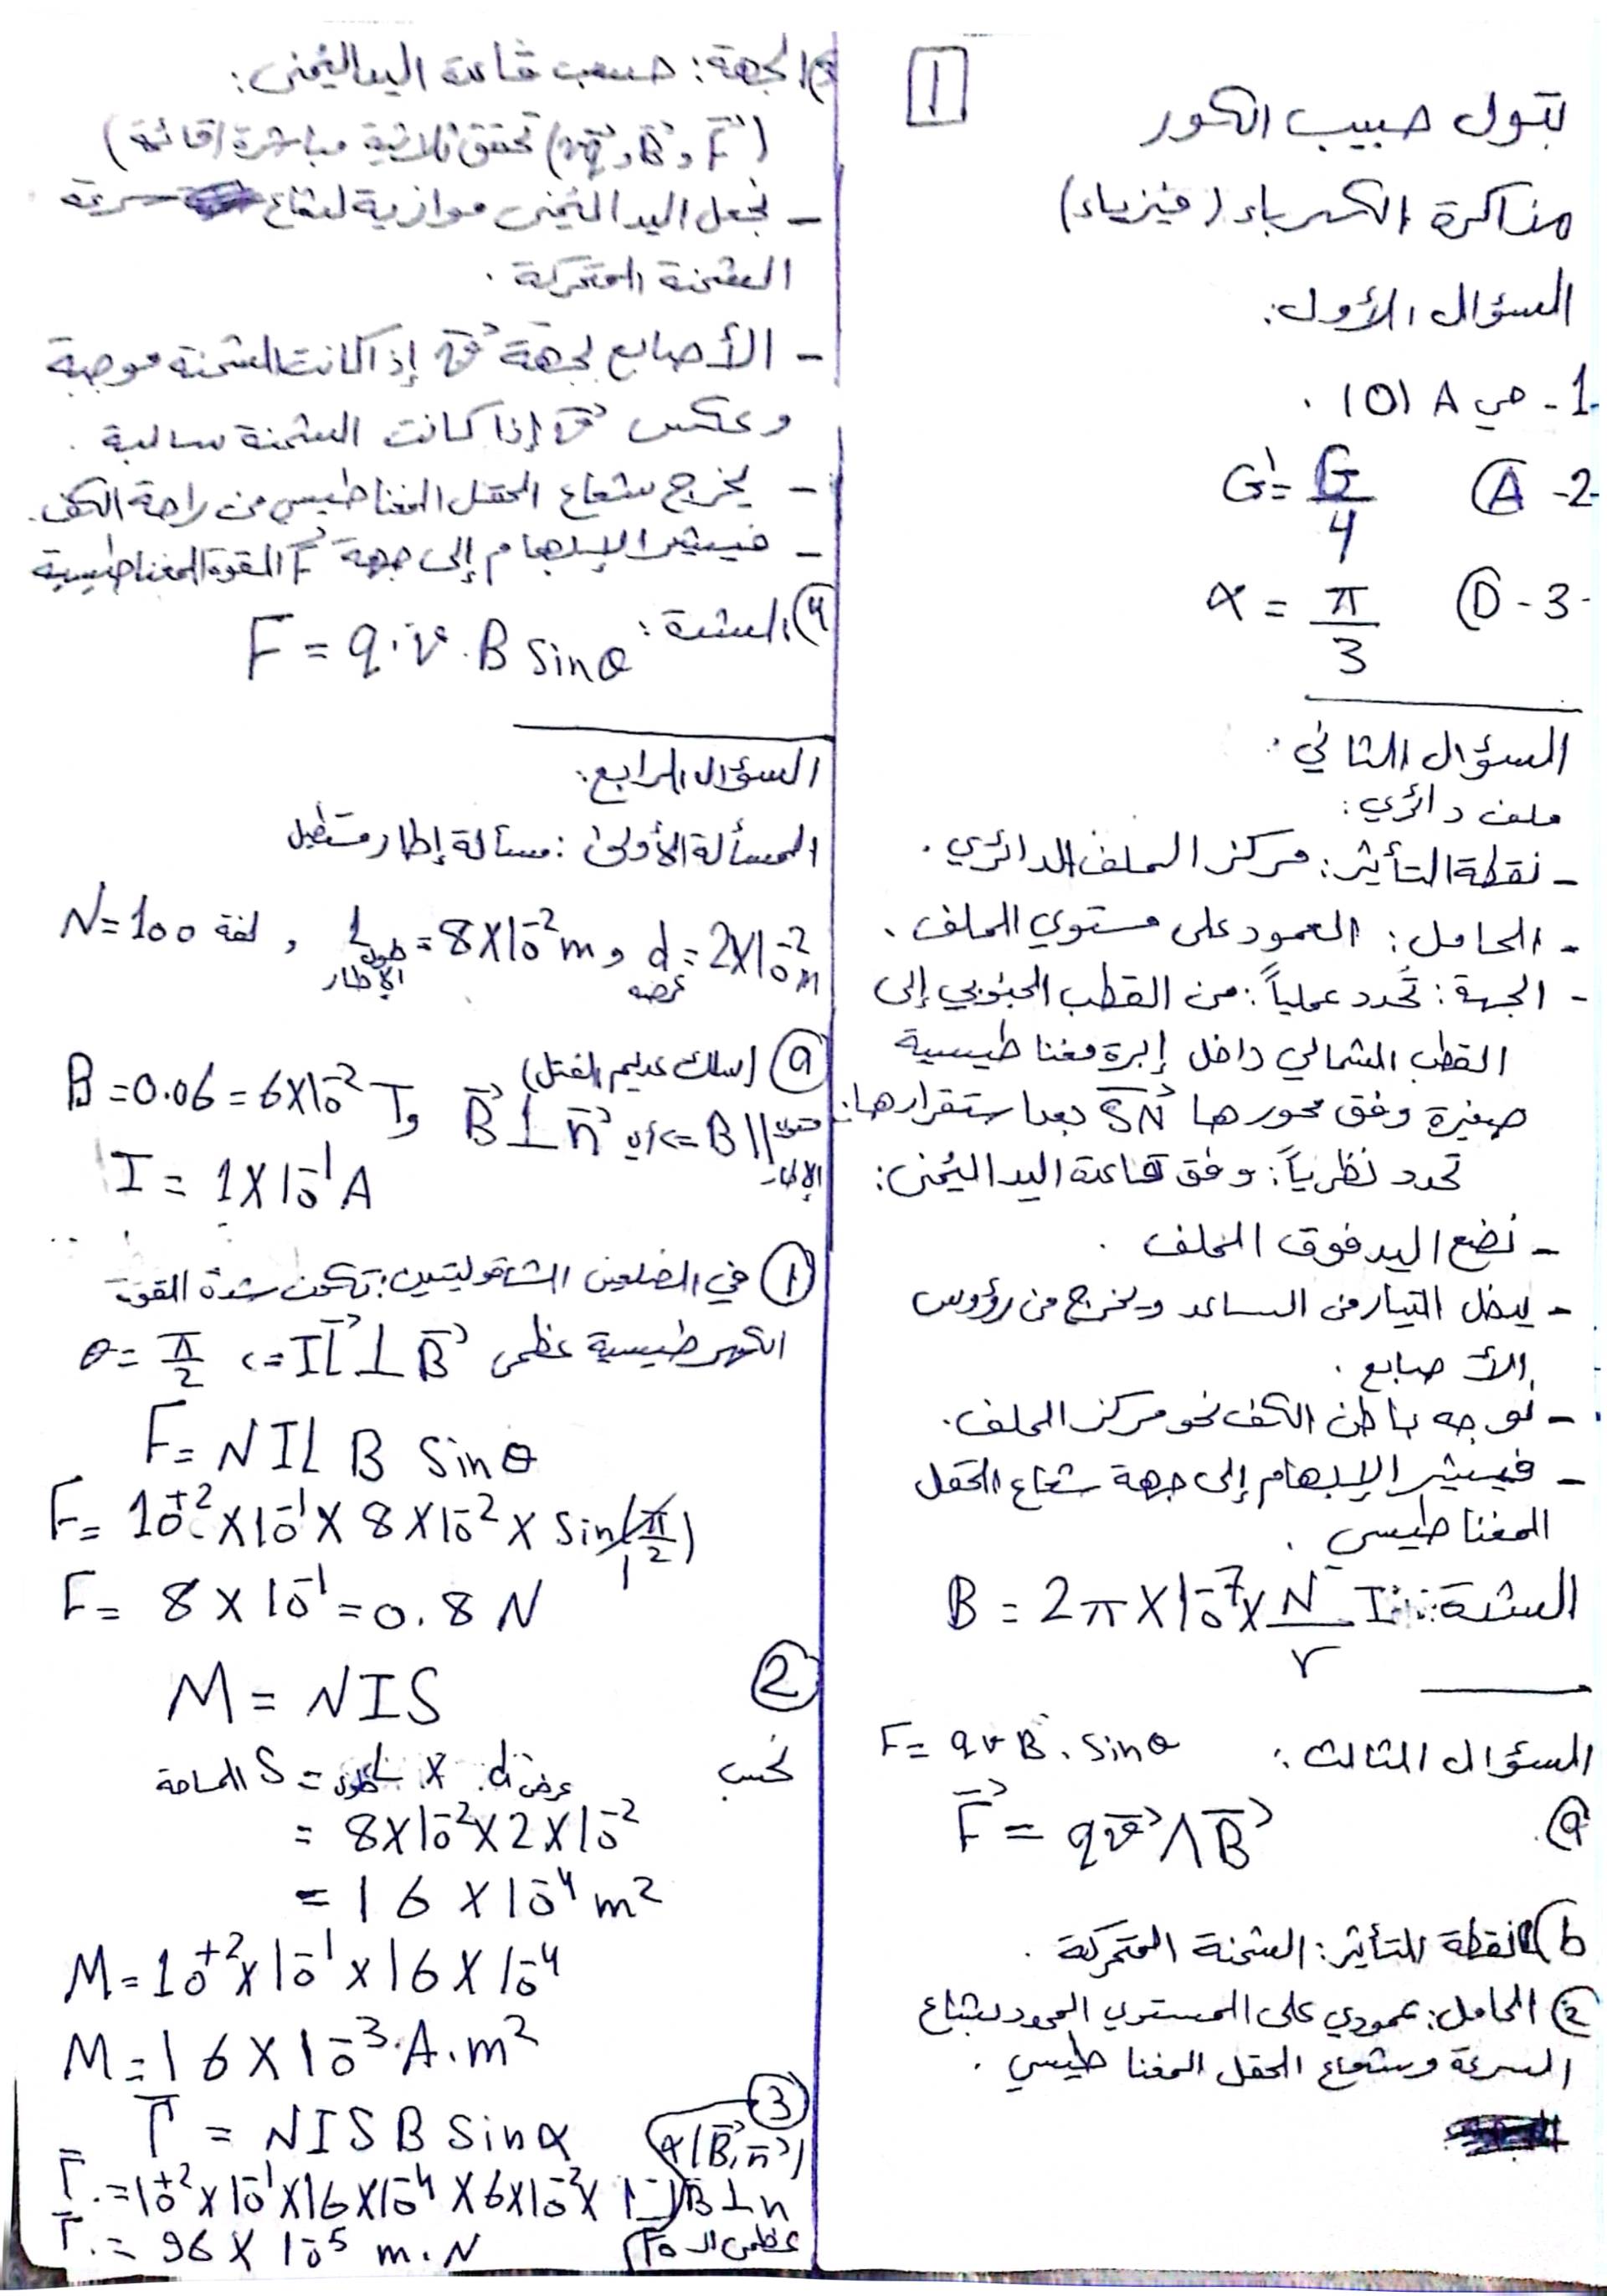 1
بتول حبيب الكور
مذاكرة الكهرباء (فيزياء)
السؤال الأول:
1- هي A (0) .
2- A G' = G/4
3- D α = π/3
السؤال الثاني:
ملف دائري:
- نقطة التأثير: مركز الملف الدائري .
- الحامل: العمود على مستوي الملف .
- الجهة: تُحدد عملياً: من القطب الجنوبي إلى
القطب الشمالي داخل إبرة مغناطيسية
صغيرة وفق محورها SN بعد استقرارها:
تحدد نظرياً: وفق قاعدة اليد اليُمنى:
- نضع اليد فوق الملف .
- يدخل التيار من الساعد ويخرج من رؤوس
الأصابع .
- نوجه باطن الكف نحو مركز الملف.
- فيشير الإبهام إلى جهة شعاع الحقل
المغناطيسي .
الشدة: B = 2π × 10⁻⁷ × N/r I
السؤال الثالث: F = qvB . sinθ
a) F⃗ = qv⃗ ∧ B⃗
b) نقطة التأثير: الشحنة المتحركة .
2) الحامل: عمودي على المستوي المحدد بشعاع
السرعة وشعاع الحقل المغناطيسي .
3) الجهة: حسب قاعدة اليد اليُمنى:
(qv⃗ و B⃗ و F⃗) تحقق ثلاثية مباشرة (قائمة)
- نجعل اليد اليُمنى موازية لشعاع سرعة
الشحنة المتحركة .
- الأصابع لجهة v⃗ إذا كانت الشحنة موجبة
وعكس v⃗ إذا كانت الشحنة سالبة .
- يخرج شعاع الحقل المغناطيسي من راحة الكف.
- فيشير الإبهام إلى جهة F⃗ القوة المغناطيسية
4) الشدة: F = q.v.B sinθ
السؤال الرابع:
المسألة الأولى: مسألة إطار مستطيل
d = 2×10⁻² m عرضه و L = 8×10⁻² m طول الإطار , N = 100 لفة
a) (سلك عديم الفتل)
B // مستوي الإطار <= أي B⃗ ⊥ n⃗ و B = 0.06 = 6×10⁻² T
I = 1×10⁻¹ A
1) في الضلعين الشاقوليتين: تكون شدة القوة
الكهرطيسية عظمى IL⃗ ⊥ B⃗ => θ = π/2
F = NIL B sinθ
F = 10⁺² × 10⁻¹ × 8×10⁻² × sin(π/2) 1
F = 8 × 10⁻¹ = 0.8 N
2) M = NIS
نحسب المساحة S = طول L × عرض d
= 8×10⁻² × 2×10⁻²
= 16 × 10⁻⁴ m²
M = 10⁺² × 10⁻¹ × 16 × 10⁻⁴
M = 16 × 10⁻³ A.m²
3) Γ = NISB sinα α(B⃗, n⃗)
Γ = 10⁺² × 10⁻¹ × 16×10⁻⁴ × 6×10⁻² × 1 B ⊥ n
Γ = 96 × 10⁻⁵ m.N عظمى